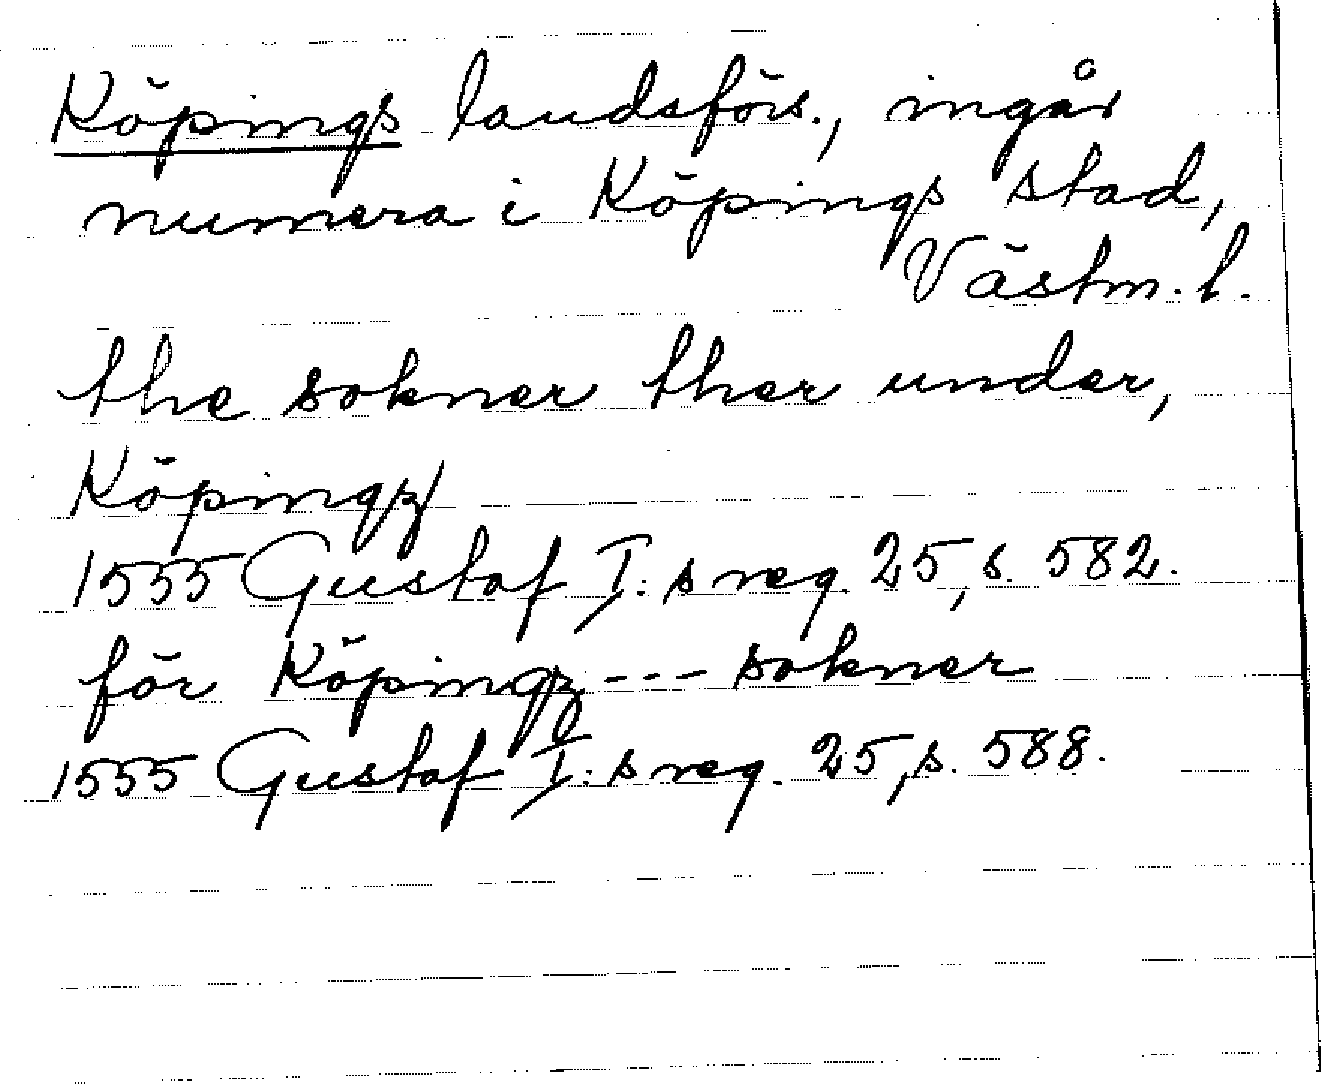 Köpings landsförs., ingår
numera i Köpings stad,
Västm. l.
the sokner ther under,
Köpingz/
1555 Gustaf I:s reg. 25, s. 582.
för Köpingz --- sokner
1555 Gustaf I:s reg. 25, s. 588.